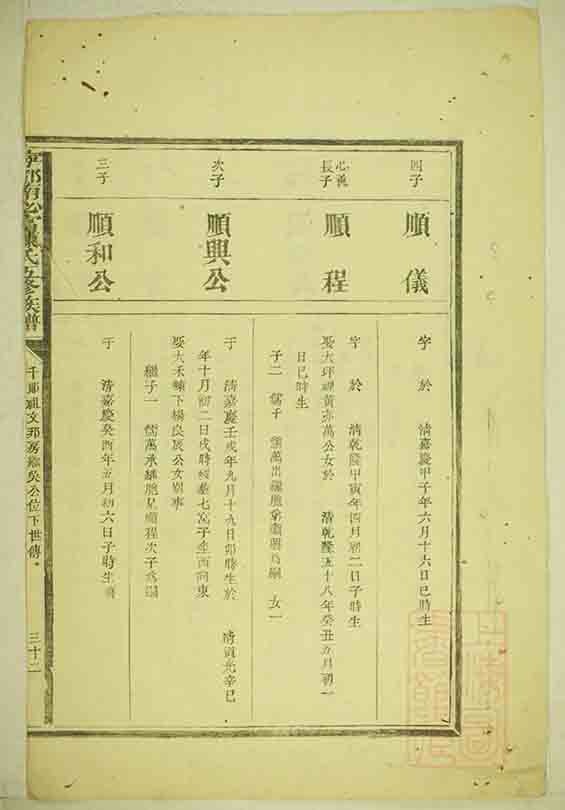 四子
順儀
字 於 清嘉慶甲子年六月十六日巳時生
心
長子
順程
字 於 清乾隆甲寅年四月初二日子時生
娶大坪 黃亦萬公女於 清乾隆五十八年癸丑五月初一
日巳時生
子二 儒千 儒萬出繼胞弟 為嗣 女一
次子
順興公
于 清嘉慶壬戌年九月十九日卯時生於 清道光辛巳
年十月初二日戌時 葬七 子坐西向東
娶大禾 下楊良 公女 事
繼子一 儒萬承繼胞兄順程次子為嗣
三子
順和公
于 清嘉慶癸酉年五月初六日子時生
氏五修族譜
千郎祖文邦房 公位下世傳。
三十二